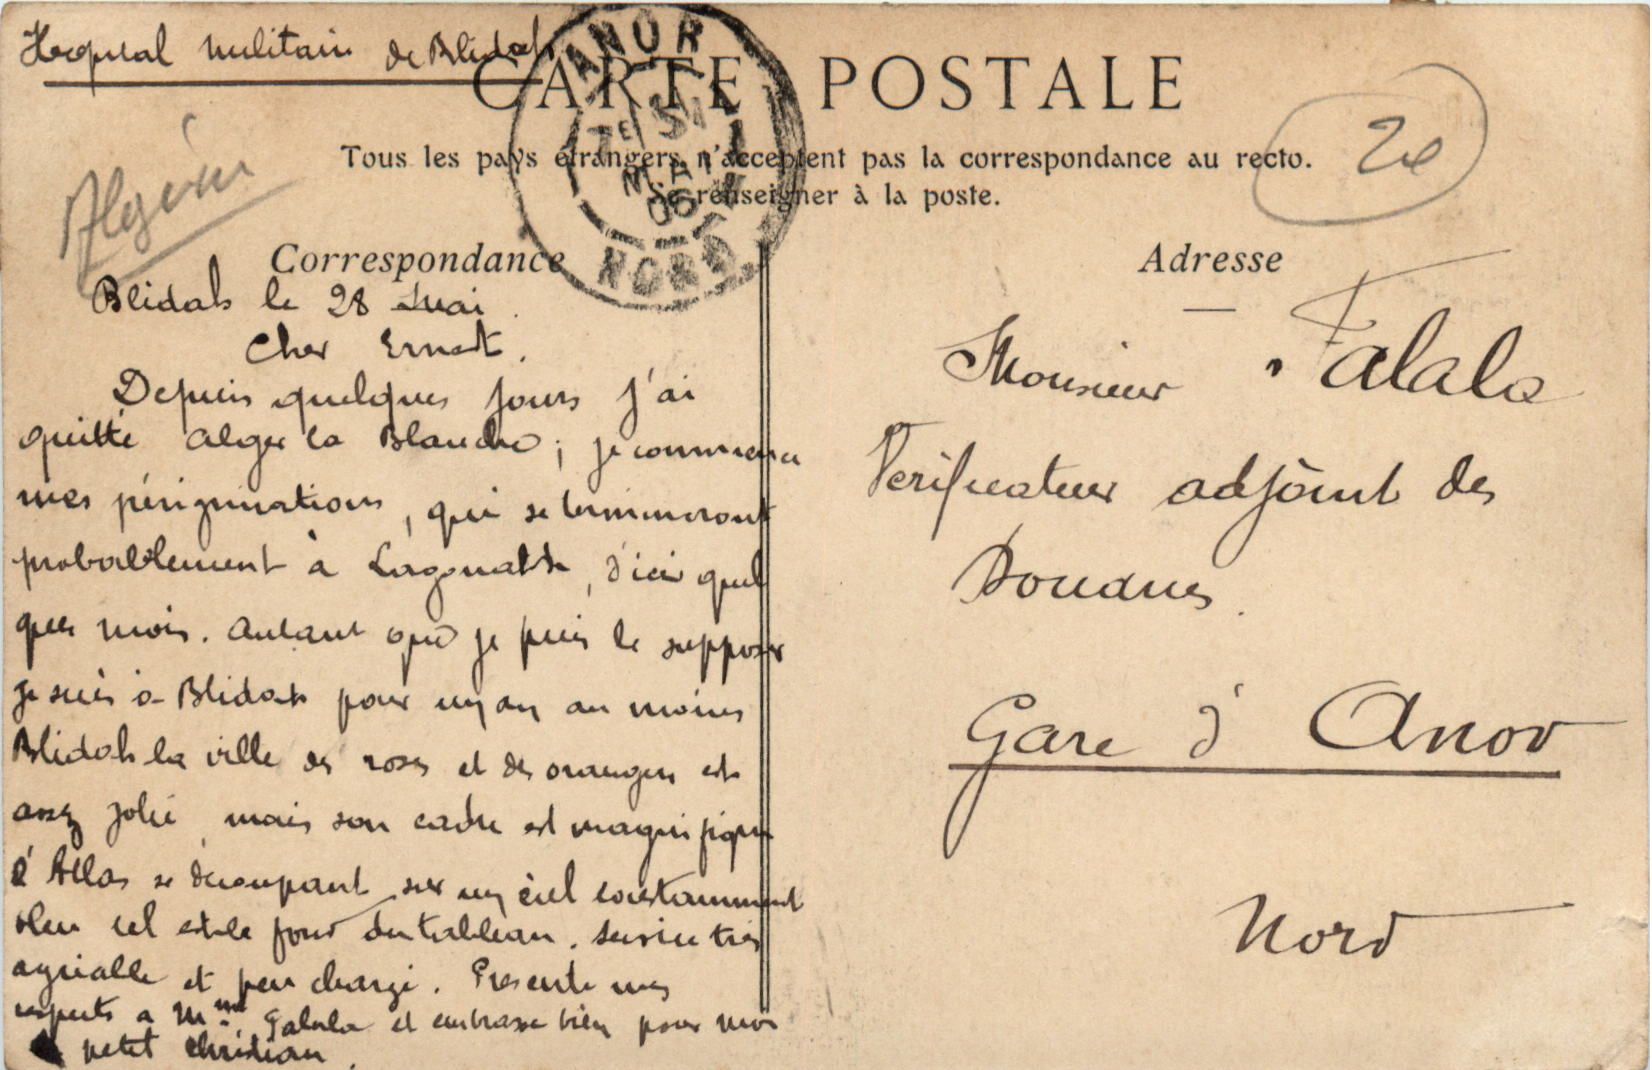 Hopital militaire de Blidah
CARTE POSTALE
Tous les pays étrangers n'acceptent pas la correspondance au recto.
Se renseigner à la poste.
Algérie
20
ANOR
7E 31
MAI
06
NORD
Correspondance
Blidah le 28 Mai.
Cher Ernest.
Depuis quelques jours j'ai
quitté Alger la Blanche; je commence
mes périgrinations, qui se termineront
probablement à Lagouath, d'ici quel
ques mois. Autant que je puis le supposer
je suis à Blidah pour un an au moins
Blidah la ville des roses et des oranges est
assez jolie, mais son cadre est magnifique
l'Atlas se découpant sur un ciel constamment
bleu tel est le fond du tableau. Service très
agréable et peu chargé. Présente mes
respects a Mme Falala et embrasse bien pour moi
petit Christian.
Adresse
Monsieur Falala
Verificateur adjoint des
Douanes.
Gare d'Anor
Nord